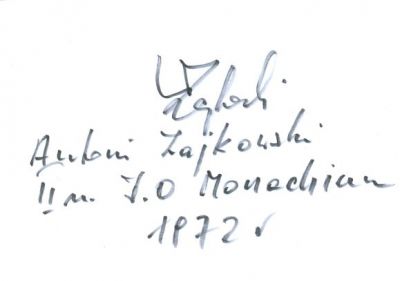 Antoni Zajkowski
II m. I.O Monachium
1972 r